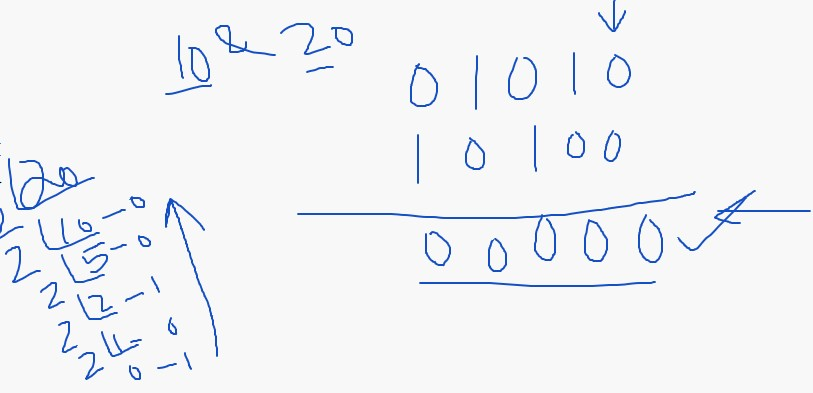 10 & 20
0 1 0 1 0
1 0 1 0 0
0 0 0 0 0
20
2 10 - 0
2 5 - 0
2 2 - 1
2 1 - 0
2 0 - 1